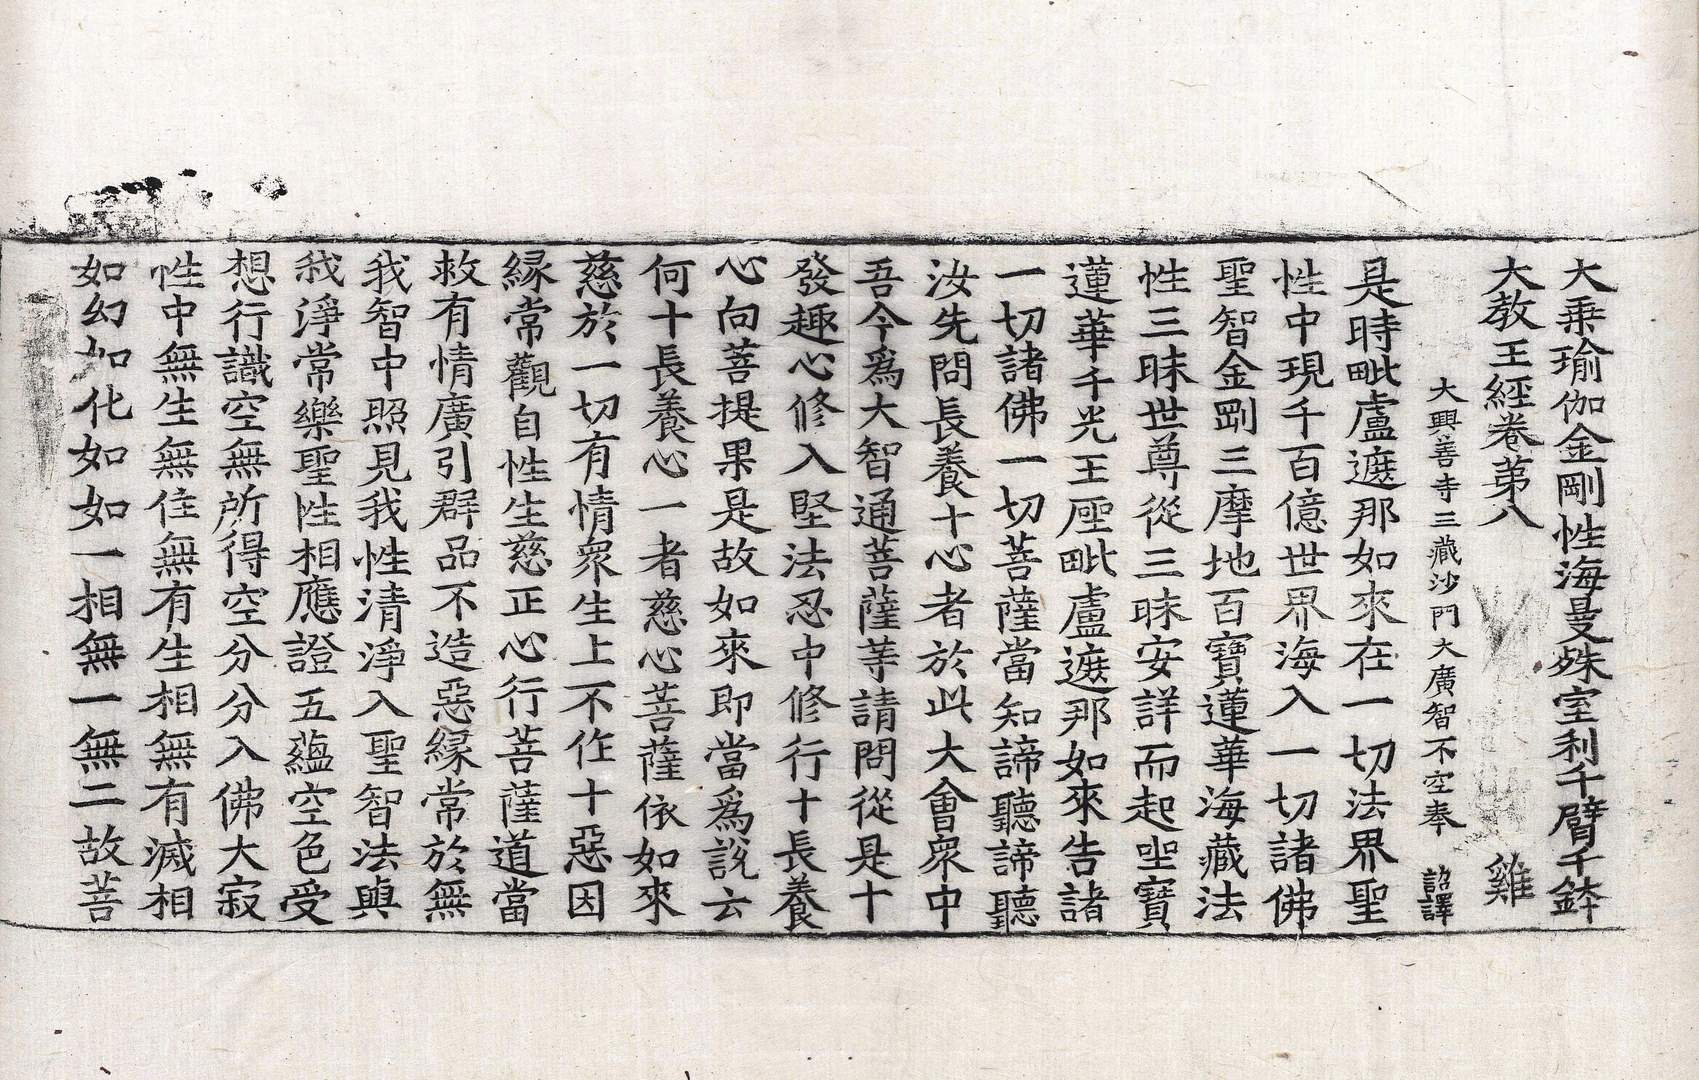 大乗瑜伽金剛性海曼殊室利千臂千鉢
大教王經卷第八 雞
大興善寺三藏沙門大廣智不空奉 詔譯
是時毗盧遮那如來在一切法界聖
性中現千百億世界海入一切諸佛
聖智金剛三摩地百寶蓮華海藏法
性三昧世尊從三昧安詳而起坐寶
蓮華千光王座毗盧遮那如來告諸
一切諸佛一切菩薩當知諦聽諦聽
汝先問長養十心者於此大會衆中
吾今爲大智通菩薩等請問從是十
發趣心修入堅法忍中修行十長養
心向菩提果是故如來即當爲說云
何十長養心一者慈心菩薩依如來
慈於一切有情衆生上不作十惡因
緣常觀自性生慈正心行菩薩道當
救有情廣引群品不造惡緣常於無
我智中照見我性清淨入聖智法與
我淨常樂聖性相應證五蘊空色受
想行識空無所得空分分入佛大寂
性中無生無住無有生相無有滅相
如幻如化如如一相無一無二故菩